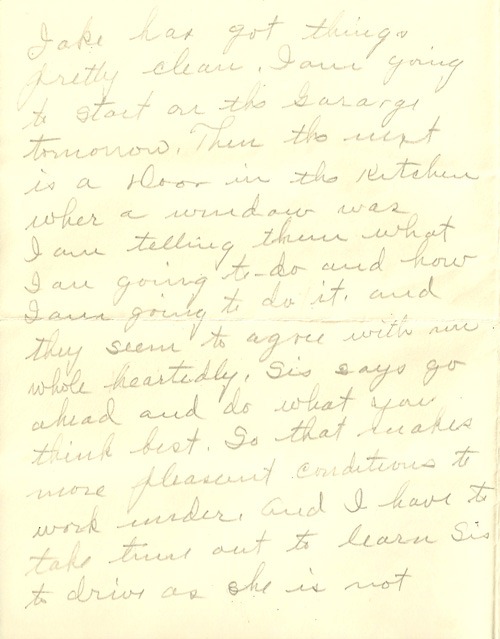 Jake has got things
pretty clean. I am going
to start on the Gararge
tomorrow. Then the next
is a Door in the Kitchen
wher a window was
I am telling them what
I am going to do and how
I am going to do it. and
they seem to agree with me
whole heartedly. Sis says go
ahead and do what you
think best. So that makes
more pleasant conditions to
work under. And I have to
take time out to learn Sis
to drive as she is not